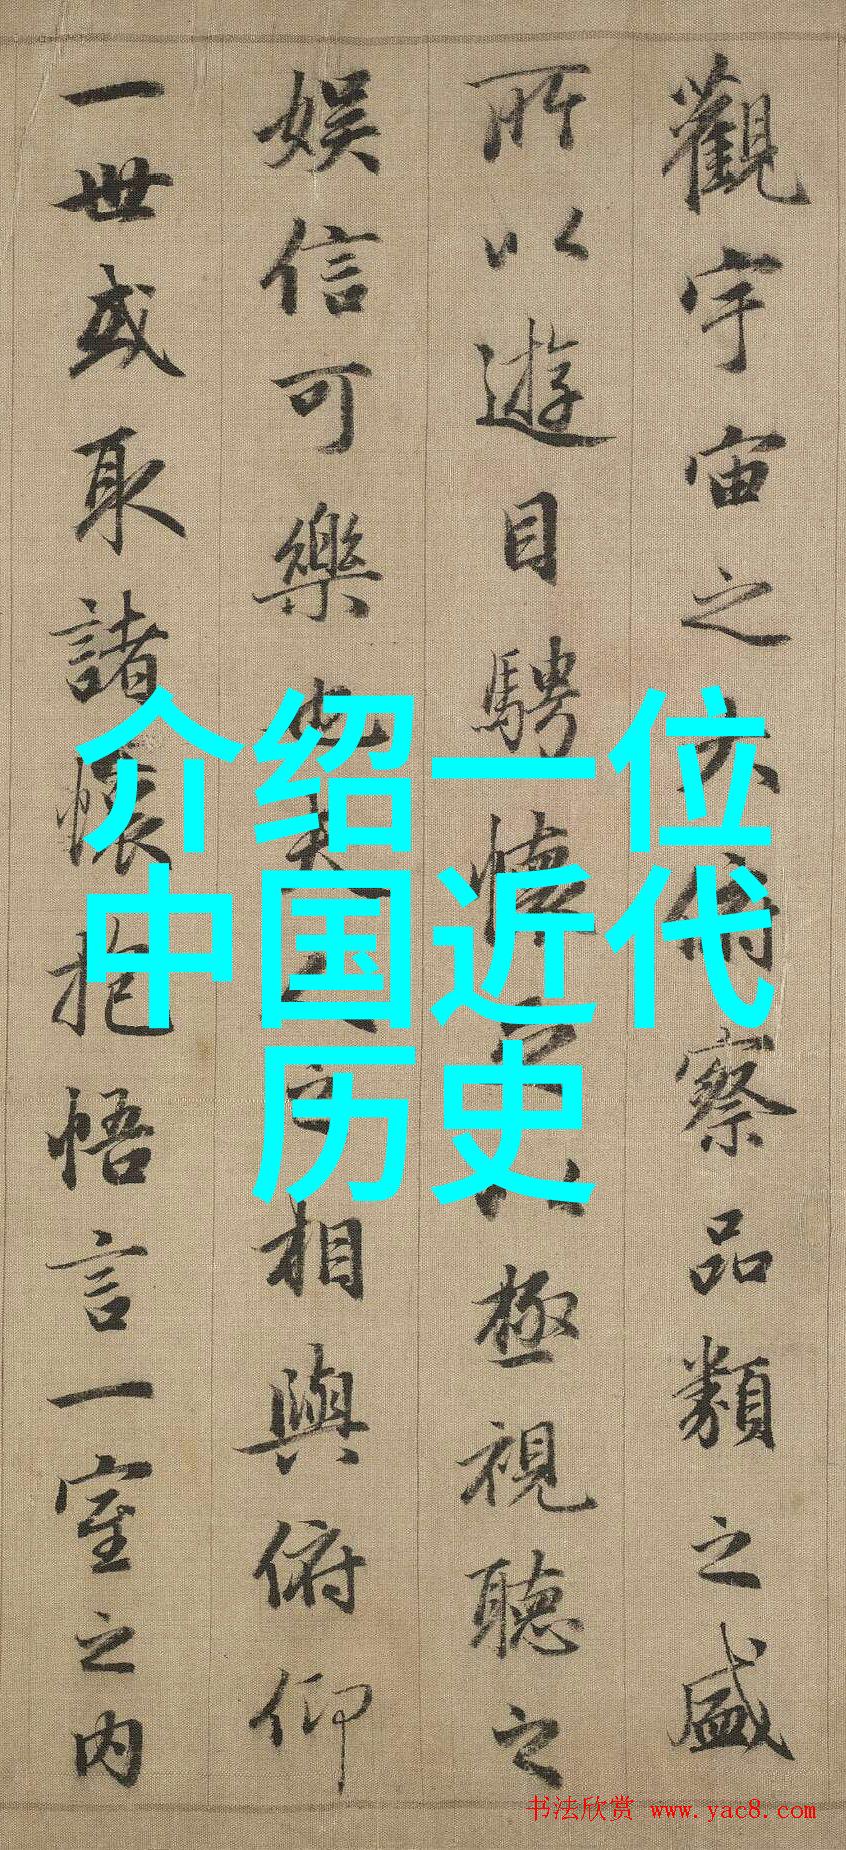 觀宇宙之大俯察品類之盛
所以遊目騁懷足以極視聽之
娛信可樂也夫人之相與俯仰
一世或取諸懷抱悟言一室之内
介绍一位
中国近代
历史
书法欣赏 www.yac8.com